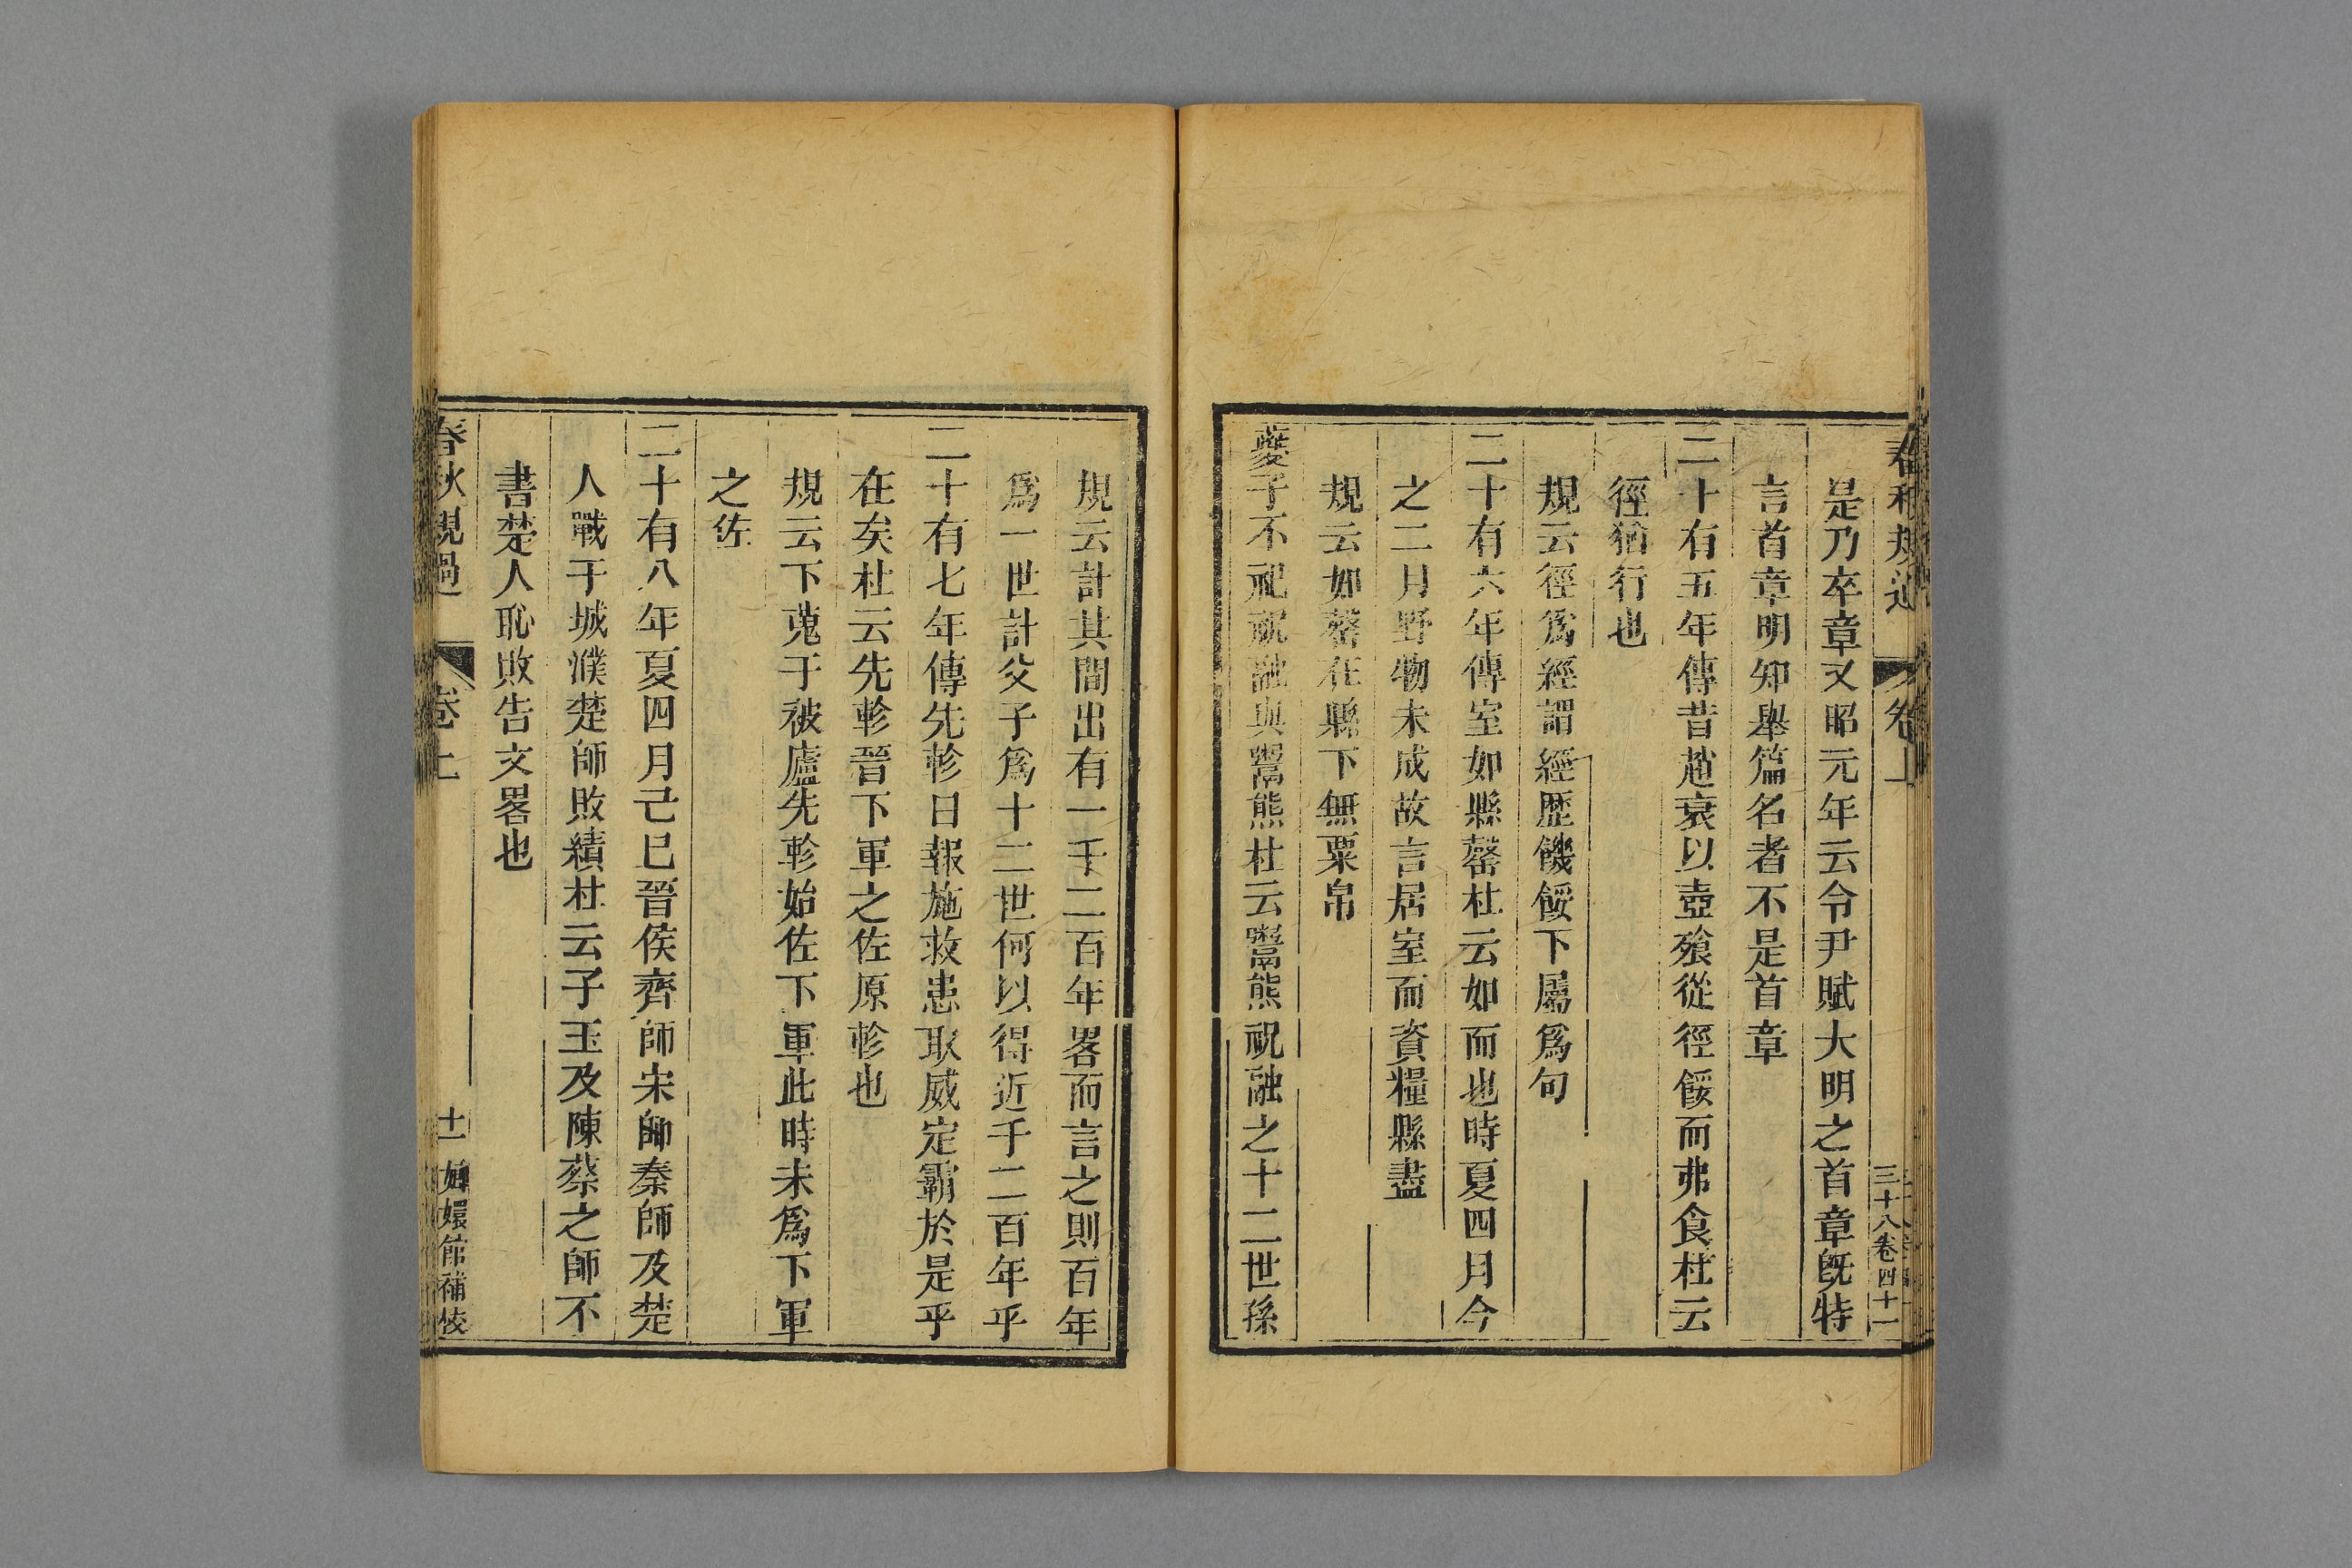 春秋規過 卷上 三十八卷四十一
是乃卒章又昭元年云令尹賦大明之首章旣特
言首章明知舉篇名者不是首章
二十有五年傳昔趙衰以壺飱從徑餒而弗食杜云
徑猶行也
規云徑爲經謂經歷饑餒下屬爲句
二十有六年傳室如縣罄杜云如而也時夏四月今
之二月野物未成故言居室而資糧縣盡
規云如罄在縣下無粟帛
夔子不祀祝融與鬻熊杜云鬻熊祝融之十二世孫
規云計其間出有一千二百年畧而言之則百年
爲一世計父子爲十二世何以得近千二百年乎
二十有七年傳先軫曰報施救患取威定霸於是乎
在矣杜云先軫晉下軍之佐原軫也
規云下蒐于被廬先軫始佐下軍此時未爲下軍
之佐
二十有八年夏四月己巳晉侯齊師宋師秦師及楚
人戰于城濮楚師敗績杜云子玉及陳蔡之師不
書楚人恥敗告文畧也
春秋規過 卷上 十一 嫏嬛館補校